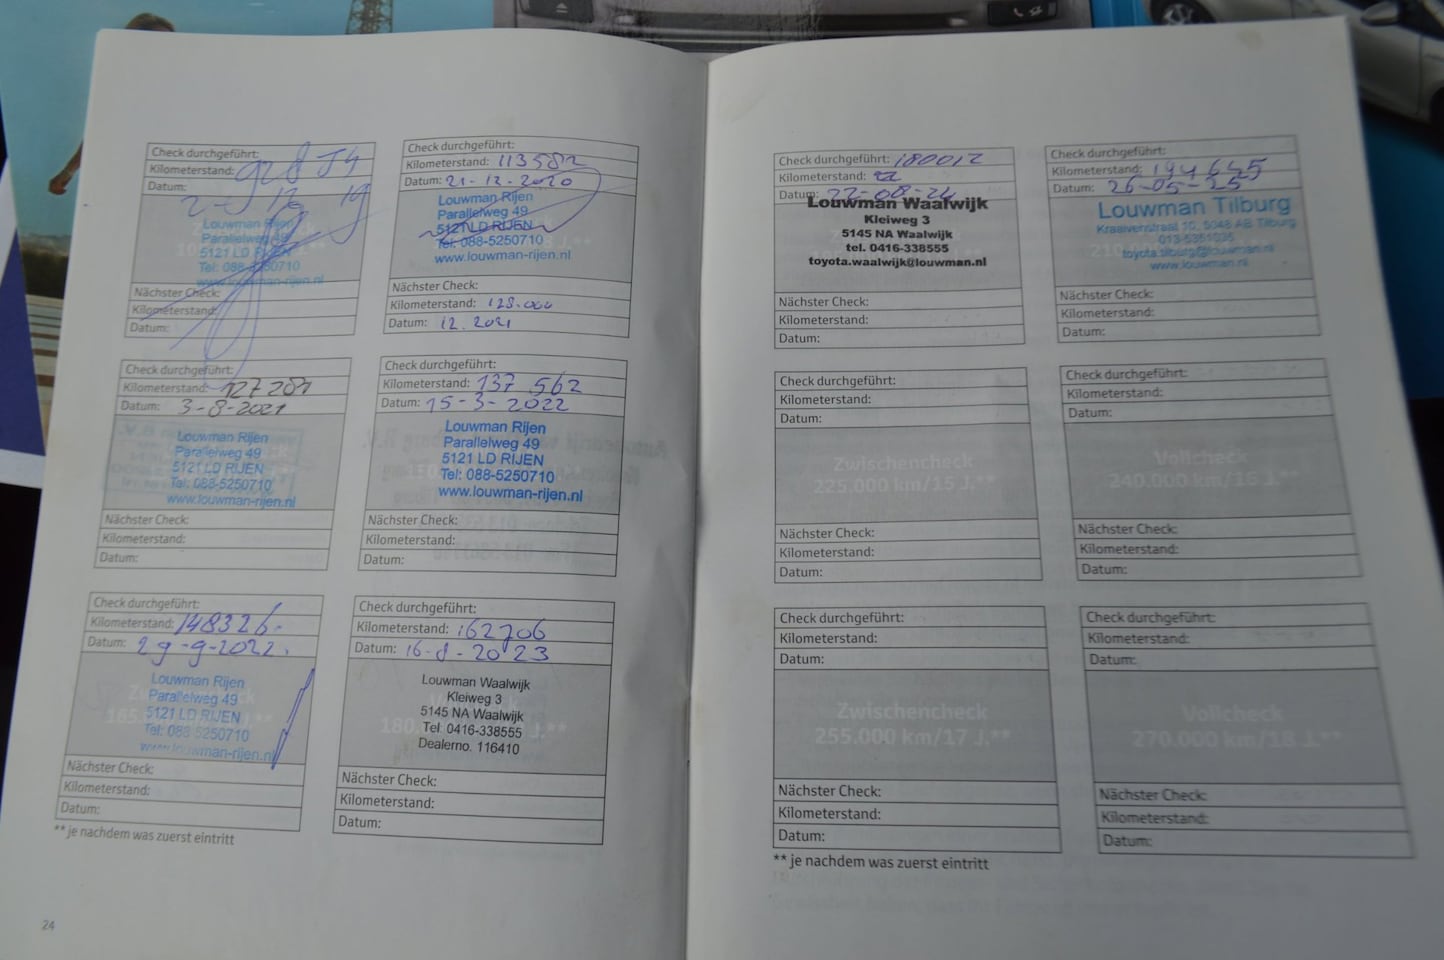 Check durchgeführt:
Kilometerstand:
Datum:
Louwman Rijen
Parallelweg 49
5121 LD RIJEN
Tel: 088-5250710
www.louwman-rijen.nl
Nächster Check:
Kilometerstand:
Datum:
Check durchgeführt:
Kilometerstand: 113582
Datum: 21-12-2020
Louwman Rijen
Parallelweg 49
5121 LD RIJEN
Tel: 088-5250710
www.louwman-rijen.nl
Nächster Check:
Kilometerstand: 128.000
Datum: 12.2021
Check durchgeführt:
Kilometerstand: 127281
Datum: 3-8-2021
Louwman Rijen
Parallelweg 49
5121 LD RIJEN
Tel: 088-5250710
www.louwman-rijen.nl
Nächster Check:
Kilometerstand:
Datum:
Check durchgeführt:
Kilometerstand: 137 562
Datum: 15-3-2022
Louwman Rijen
Parallelweg 49
5121 LD RIJEN
Tel: 088-5250710
www.louwman-rijen.nl
Nächster Check:
Kilometerstand:
Datum:
Check durchgeführt:
Kilometerstand: 148326.
Datum: 29-9-2022.
Louwman Rijen
Parallelweg 49
5121 LD RIJEN
Tel: 088-5250710
www.louwman-rijen.nl
Nächster Check:
Kilometerstand:
Datum:
Check durchgeführt:
Kilometerstand: 162706
Datum: 16-8-2023
Louwman Waalwijk
Kleiweg 3
5145 NA Waalwijk
Tel. 0416-338555
Dealerno. 116410
Nächster Check:
Kilometerstand:
Datum:
** je nachdem was zuerst eintritt
24
Check durchgeführt: 180012
Kilometerstand:
Datum: 22-08-24
Louwman Waalwijk
Kleiweg 3
5145 NA Waalwijk
tel. 0416-338555
toyota.waalwijk@louwman.nl
Nächster Check:
Kilometerstand:
Datum:
Check durchgeführt:
Kilometerstand: 194645
Datum: 26-05-25
Louwman Tilburg
Kraaivenstraat 10, 5048 AB Tilburg
toyota.tilburg@louwman.nl
www.louwman.nl
Nächster Check:
Kilometerstand:
Datum:
Check durchgeführt:
Kilometerstand:
Datum:
Zwischencheck
225.000 km/15 J.**
Nächster Check:
Kilometerstand:
Datum:
Check durchgeführt:
Kilometerstand:
Datum:
Vollcheck
240.000 km/16 J.**
Nächster Check:
Kilometerstand:
Datum:
Check durchgeführt:
Kilometerstand:
Datum:
Zwischencheck
255.000 km/17 J.**
Nächster Check:
Kilometerstand:
Datum:
Check durchgeführt:
Kilometerstand:
Datum:
Vollcheck
270.000 km/18 J.**
Nächster Check:
Kilometerstand:
Datum:
** je nachdem was zuerst eintritt